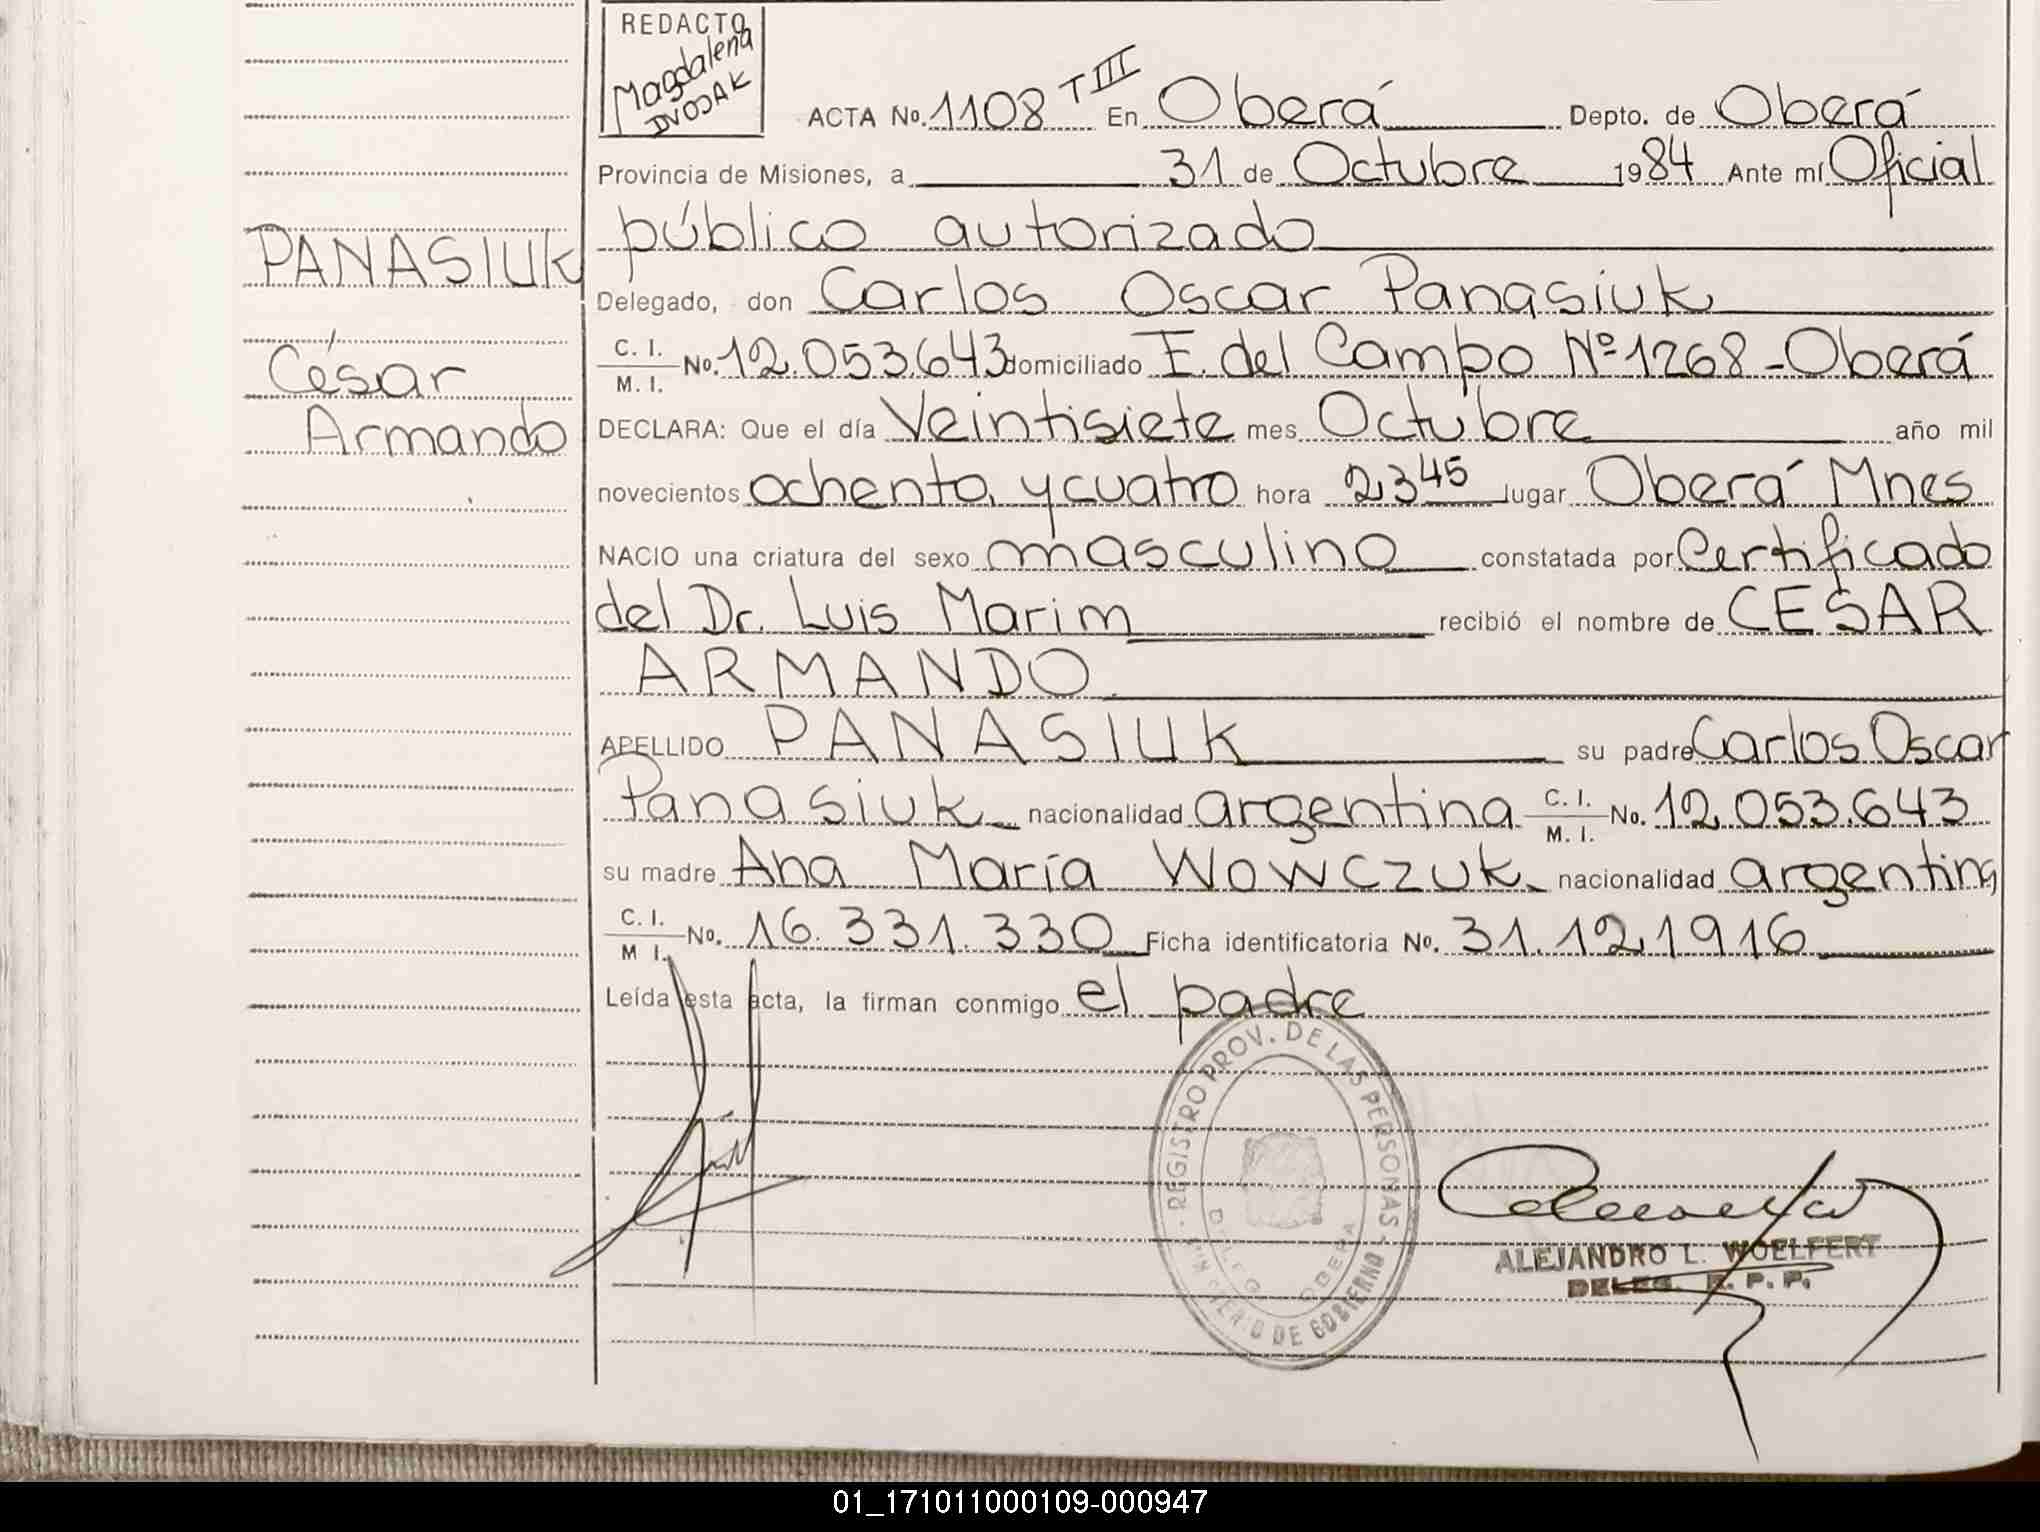 REDACTO
Magdalena
DVOJAK
ACTA No. 1108 T III En Oberá Depto. de Oberá
Provincia de Misiones, a 31 de Octubre 1984 Ante mí Oficial
público autorizado
PANASIUK
Delegado, don Carlos Oscar Panasiuk
C. I. M. I. No. 12.053.643 domiciliado E. del Campo Nº 1268 - Oberá
César
Armando
DECLARA: Que el día Veintisiete mes Octubre año mil
novecientos ochenta y cuatro hora 23 45 lugar Oberá Mnes
NACIO una criatura del sexo masculino constatada por Certificado
del Dr. Luis Marim recibió el nombre de CESAR
ARMANDO
APELLIDO PANASIUK su padre Carlos Oscar
Panasiuk nacionalidad argentina C. I. M. I. No. 12.053.643
su madre Ana María Wowczuk nacionalidad argentina
C. I. M I. No. 16.331.330 Ficha identificatoria No. 31.121916
Leída esta acta, la firman conmigo el padre
REGISTRO PROV. DE LAS PERSONAS
MINISTERIO DE GOBIERNO
DELEG. OBERA
ALEJANDRO L. WOELFERT
DELEG. R. P. P.
01_171011000109-000947